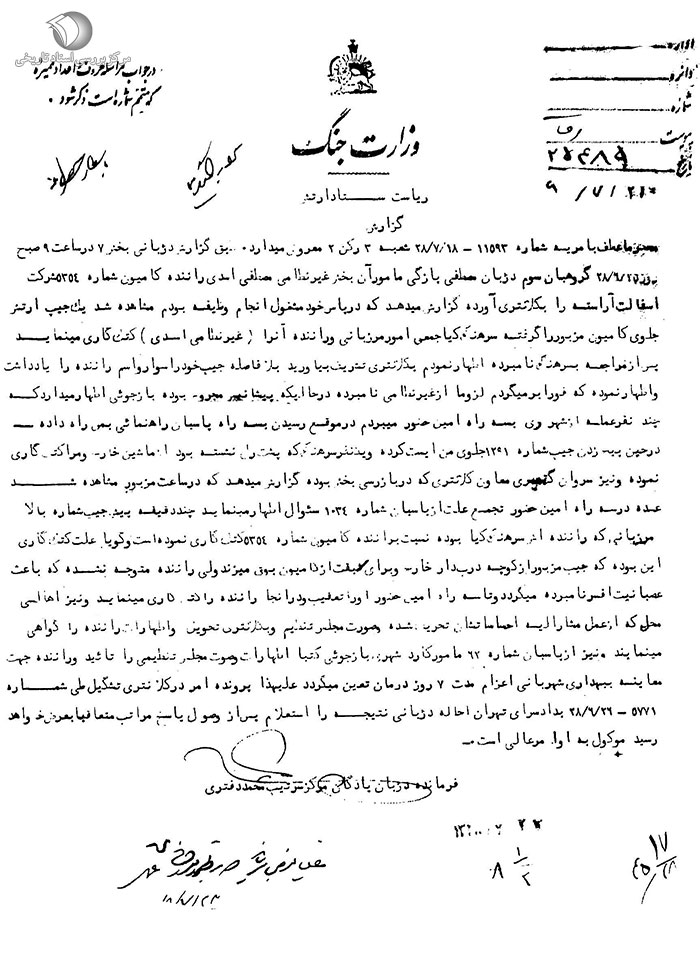 مرکز بررسی اسناد تاریخی
در جواب مراسله حروف و اعداد ممیزه
که متضمن شماره است ذکر شود .
اداره
دائره
شماره
پیوست
تاریخ
وزارت جنگ
ریاست ستاد ارتش
گزارش
محترما عطف بامریه شماره ۱۱۵۹۳ – ۲۸/۷/۱۸ شعبه ۳ رکن ۲ معروض میدارد طبق گزارش دژبانی بخش ۷ در ساعت ۹ صبح
روز ۲۸/۶/۲۵ گروهبان سوم دژبان مصطفی بازگی مامور آن بخش غیرنظامی مصطفی اسدی راننده کامیون شماره ۵۳۵۴ شرکت
اسفالت آراسته را بکلانتری آورده گزارش میدهد که در بالاسر خود مشغول انجام وظیفه بودم مشاهده شد یك جیپ ارتش
جلوی کامیون مزبور را گرفته سرهنگ کیا جمعی امور مرزبانی و راننده آنرا ( غیرنظامی اسدی ) کتک کاری مینماید
پس از مراجعه بسرهنگ نامبرده اظهار نمودم بکلانتری تشریف بیاورید بلافاصله جیپ خود را سوار و اسم راننده را یادداشت
و اظهار نموده که فورا برمیگردم لزوما از غیرنظامی نامبرده در حالیکه پیشانیش مجروح بوده بازجوئی اظهار میدارد که
چند نفر عمله از شهر ری بسه راه امین حضور میبردم در موقع رسیدن بسه راه پاسبان راهنمائی بمن راه داده
در حین پیچ زدن جیپ شماره ۱۲۹۱ جلوی من ایست کرده و یکنفر سرهنگ که پشت رل نشسته بود از ماشین خارج و مرا کتک کاری
نموده و نیز سروان معاون کلانتری که در بازرسی بخش بوده گزارش میدهد که در ساعت مزبور مشاهده شد
عده در سه راه امین حضور تجمع علت از پاسبان شماره ۱۰۳۴ سئوال اظهار مینماید چند دقیقه پیش جیپ شماره بالا
مرزبانی که راننده اش سرهنگ کیا بوده نسبت براننده کامیون شماره ۵۳۵۴ کتک کاری نموده است و گویا علت کتک کاری
این بوده که جیپ مزبور از کوچه دربدار خارج و برای سبقت از کامیون بوق میزند ولی راننده متوجه نشده که باعث
عصبانیت افسر نامبرده میگردد و تا سه راه امین حضور او را تعقیب و در آنجا راننده را کتک کاری مینماید و نیز اهالی
محل که از عمل مشارالیه احساساتشان تحریک شده بصورت مجلس تنظیم و بکلانتری تحویل و اظهارات راننده را گواهی
مینمایند و نیز از پاسبان شماره ۶۲ مامور گارد شهری بازجوئی کتبا اظهارات و صورت مجلس تنظیمی را تائید و راننده جهت
معاینه ببهداری شهربانی اعزام مدت ۷ روز درمان تعیین میگردد علیهذا پرونده امر در کلانتری تشکیل طی شماره
۵۷۷۱ – ۲۸/۶/۲۶ بدادسرای تهران احاله دژبانی نتیجه را استعلام پس از وصول پاسخ مراتب متعاقبا بعرض خواهد
رسید موکول به اوامر عالی است –
فرمانده دژبان پادگان مرکز سرتیپ محمد دفتری